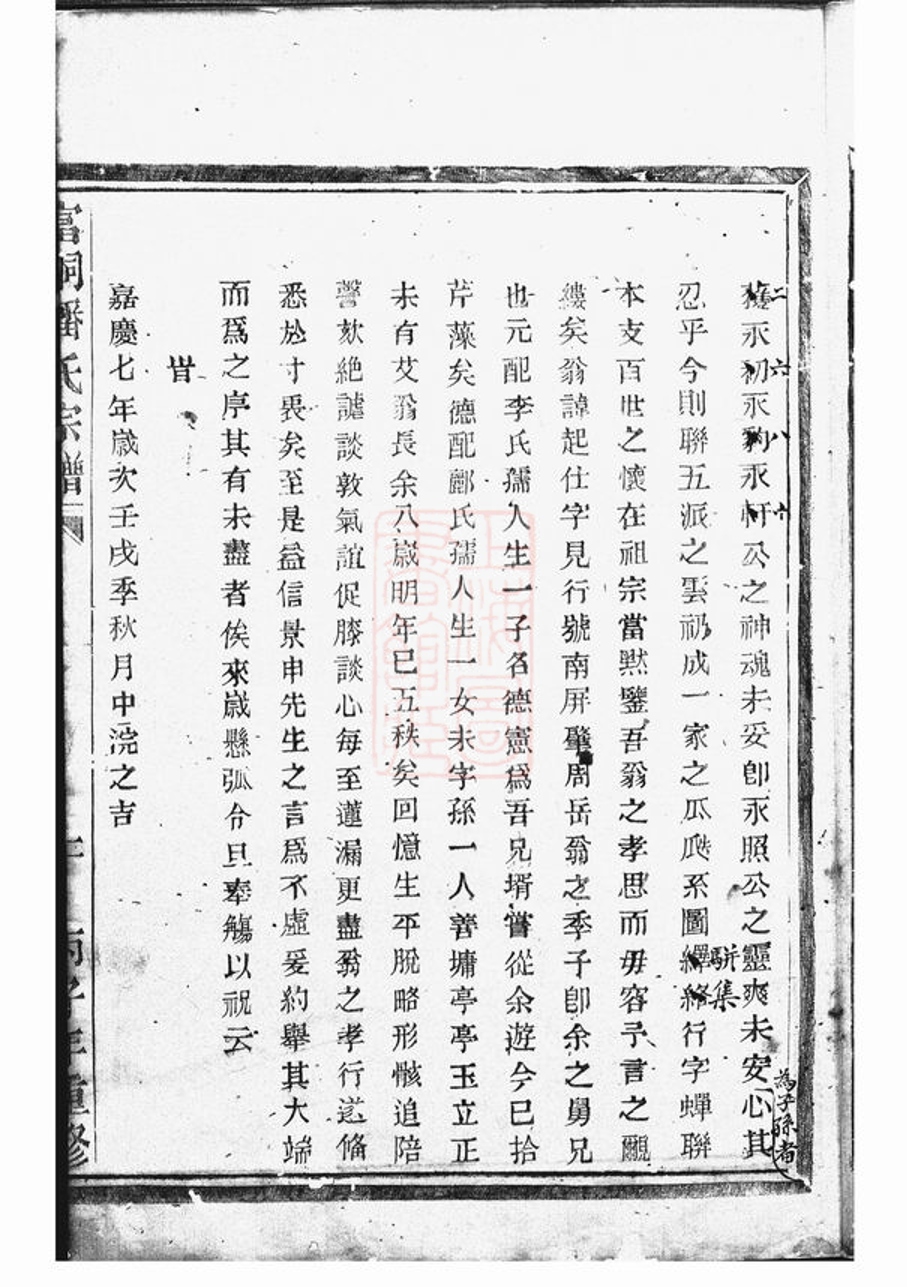 二 六 八 十
獲永初永豹永軒公之神魂未妥卽永照公之靈爽未安心其
為子孫者
忍乎今則聯五派之雲礽成一家之瓜瓞系圖繹絡行字蟬聯
駢集
本支百世之懷在祖宗當默鑒吾翁之孝思而毋容予言之覼
縷矣翁諱起仕字見行號南屏肇周岳翁之季子卽余之舅兄
也元配李氏孺人生一子名德憲爲吾兄壻嘗從余遊今已拾
芹藻矣德配酈氏孺人生一女未字孫一人善墉亭亭玉立正
未有艾翁長余八歲明年已五秩矣回憶生平脫略形骸追陪
謦欬絕謔談敦氣誼促膝談心每至蓮漏更盡翁之孝行遂俻
悉於寸裏矣至是益信景申先生之言爲不虛爰約舉其大端
而爲之序其有未盡者俟來歲懸弧令旦奉觴以祝云
旹
嘉慶七年歲次壬戌季秋月中浣之吉
富桐潘氏宗譜
丙子年重修